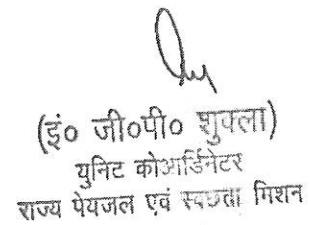 (इं० जी०पी० शुक्ला)
युनिट कोआर्डिनेटर
राज्य पेयजल एवं स्वच्छता मिशन